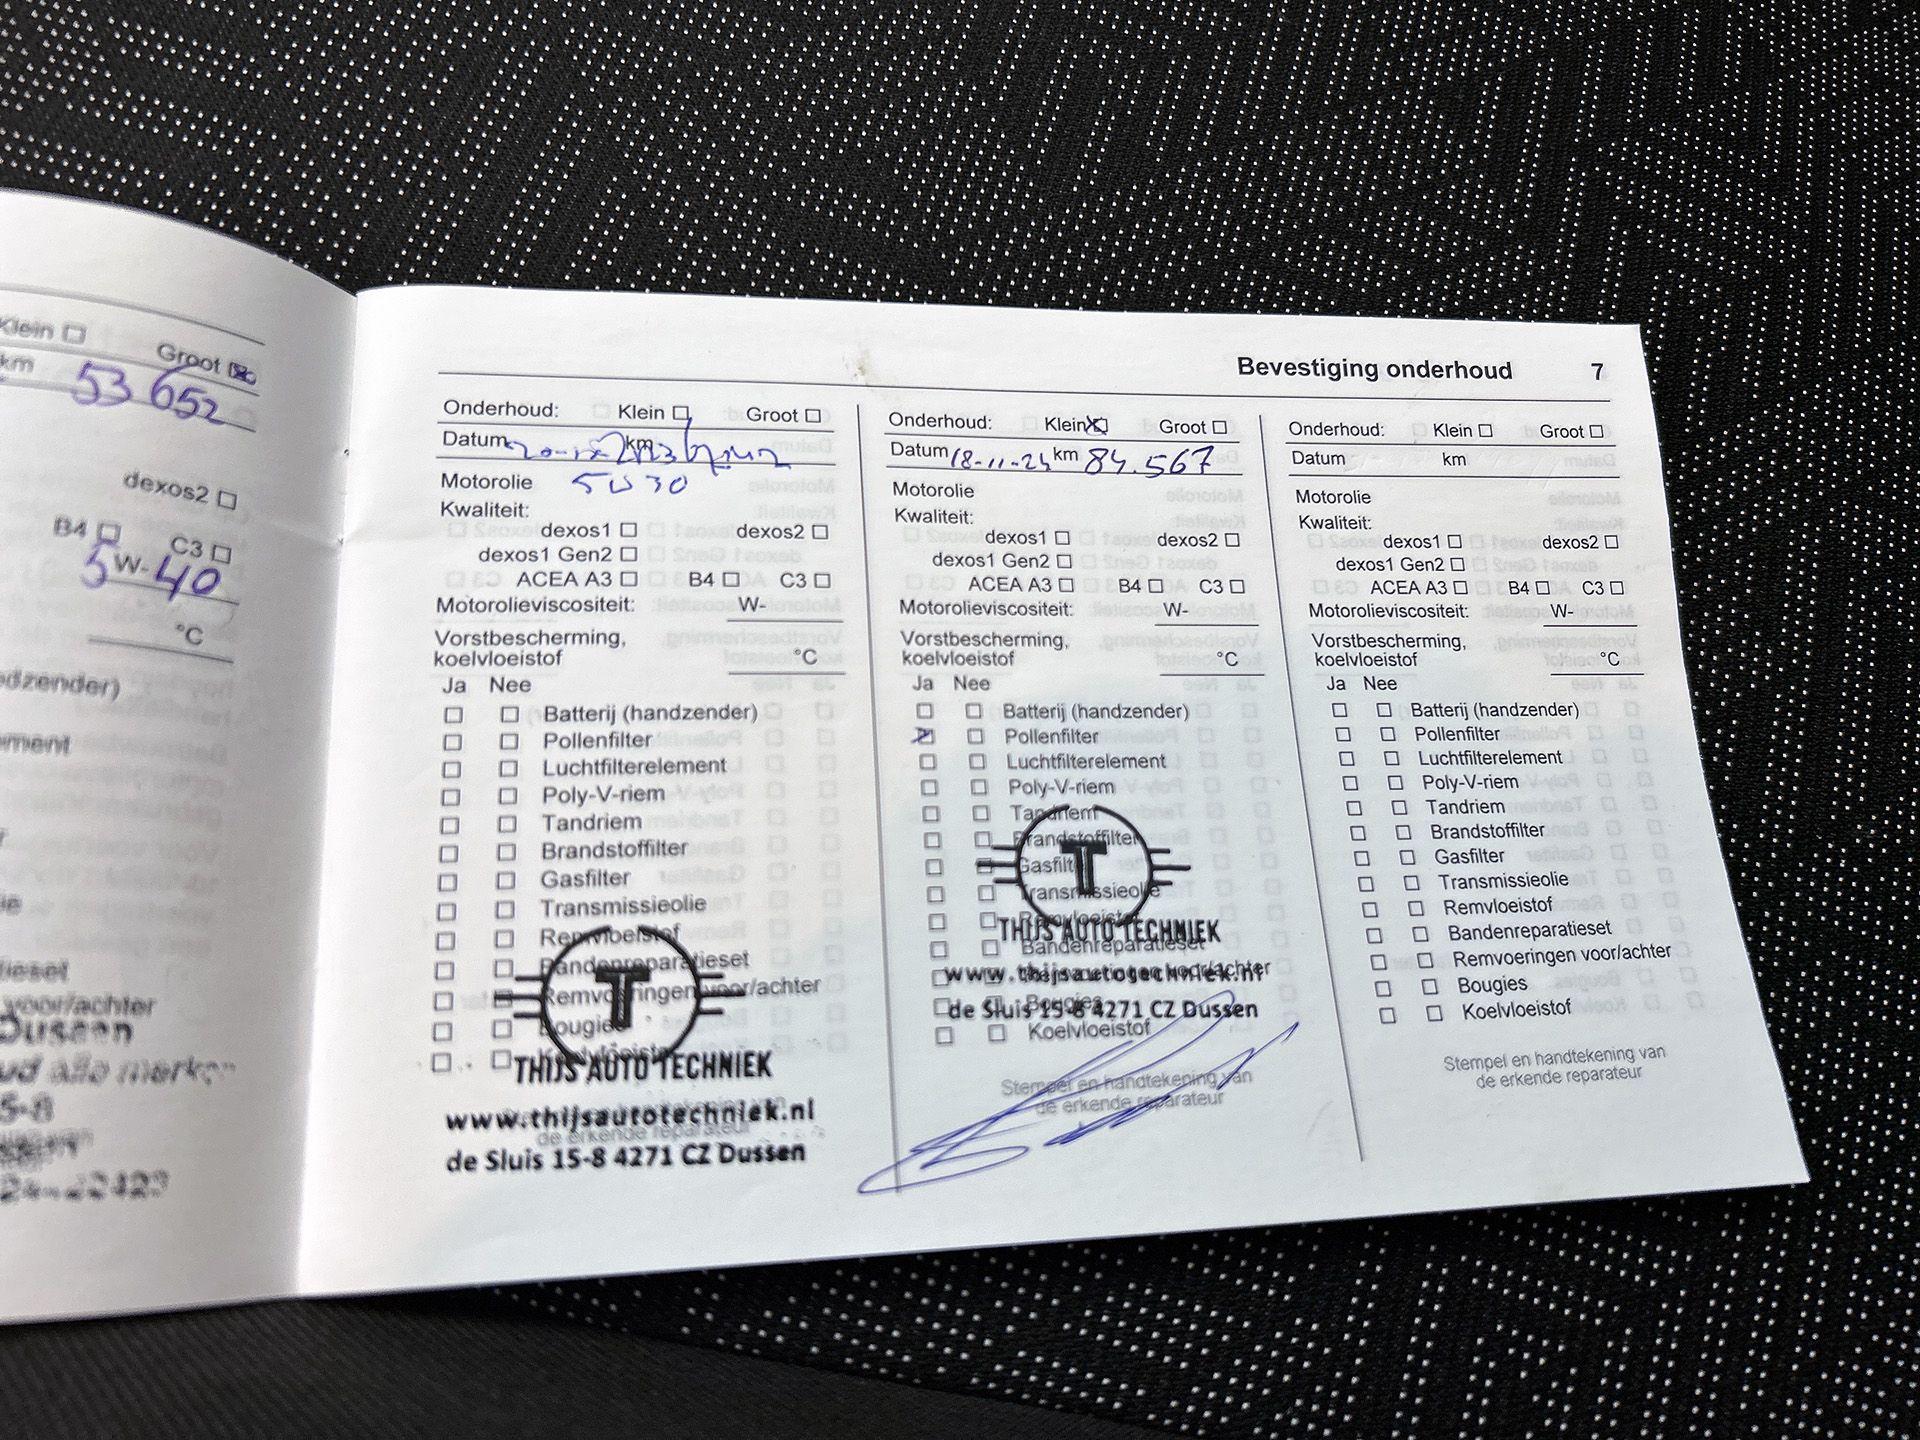 Klein Groot
km 53652
dexos2
B4 C3
5W-40
°C
voor/achter
Dussen
5-8
Bevestiging onderhoud 7
Onderhoud: Klein Groot
Datum km
Motorolie 5W30
Kwaliteit:
dexos1 dexos2
dexos1 Gen2
ACEA A3 B4 C3
Motorolieviscositeit: W-
Vorstbescherming,
koelvloeistof °C
Ja Nee
Batterij (handzender)
Pollenfilter
Luchtfilterelement
Poly-V-riem
Tandriem
Brandstoffilter
Gasfilter
Transmissieolie
Remvloeistof
Bandenreparatieset
Remvoeringen voor/achter
Bougies
Koelvloeistof
T
THIJS AUTO TECHNIEK
www.thijsautotechniek.nl
de erkende reparateur
de Sluis 15-8 4271 CZ Dussen
Onderhoud: Klein Groot
Datum 18-11-24 km 84.567
Motorolie
Kwaliteit:
dexos1 dexos2
dexos1 Gen2
ACEA A3 B4 C3
Motorolieviscositeit: W-
Vorstbescherming,
koelvloeistof °C
Ja Nee
Batterij (handzender)
Pollenfilter
Luchtfilterelement
Poly-V-riem
Tandriem
Brandstoffilter
Gasfilter
Transmissieolie
Remvloeistof
Bandenreparatieset
Remvoeringen voor/achter
Bougies
Koelvloeistof
T
THIJS AUTO TECHNIEK
www.thijsautotechniek.nl
de Sluis 15-8 4271 CZ Dussen
Stempel en handtekening van
de erkende reparateur
Onderhoud: Klein Groot
Datum km
Motorolie
Kwaliteit:
dexos1 dexos2
dexos1 Gen2
ACEA A3 B4 C3
Motorolieviscositeit: W-
Vorstbescherming,
koelvloeistof °C
Ja Nee
Batterij (handzender)
Pollenfilter
Luchtfilterelement
Poly-V-riem
Tandriem
Brandstoffilter
Gasfilter
Transmissieolie
Remvloeistof
Bandenreparatieset
Remvoeringen voor/achter
Bougies
Koelvloeistof
Stempel en handtekening van
de erkende reparateur